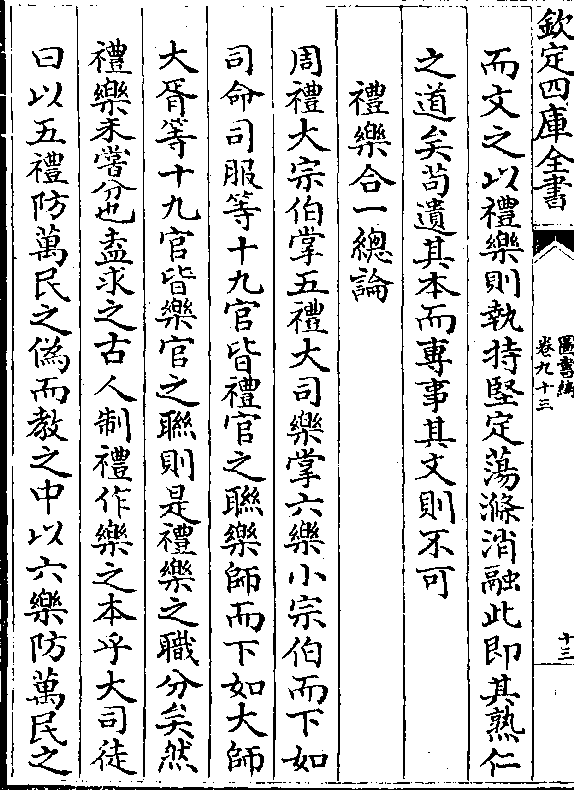 欽定四庫全書
圖書編
卷九十三
十三
而文之以禮樂則執持堅定蕩滌消融此即其熟仁
之道矣苟遺其本而專事其文則不可
禮樂合一總論
周禮大宗伯掌五禮大司樂掌六樂小宗伯而下如
司命司服等十九官皆禮官之聯樂師而下如大師
大胥等十九官皆樂官之聯則是禮樂之職分矣然
禮樂未嘗分也盍求之古人制禮作樂之本乎大司徒
曰以五禮防萬民之偽而教之中以六樂防萬民之